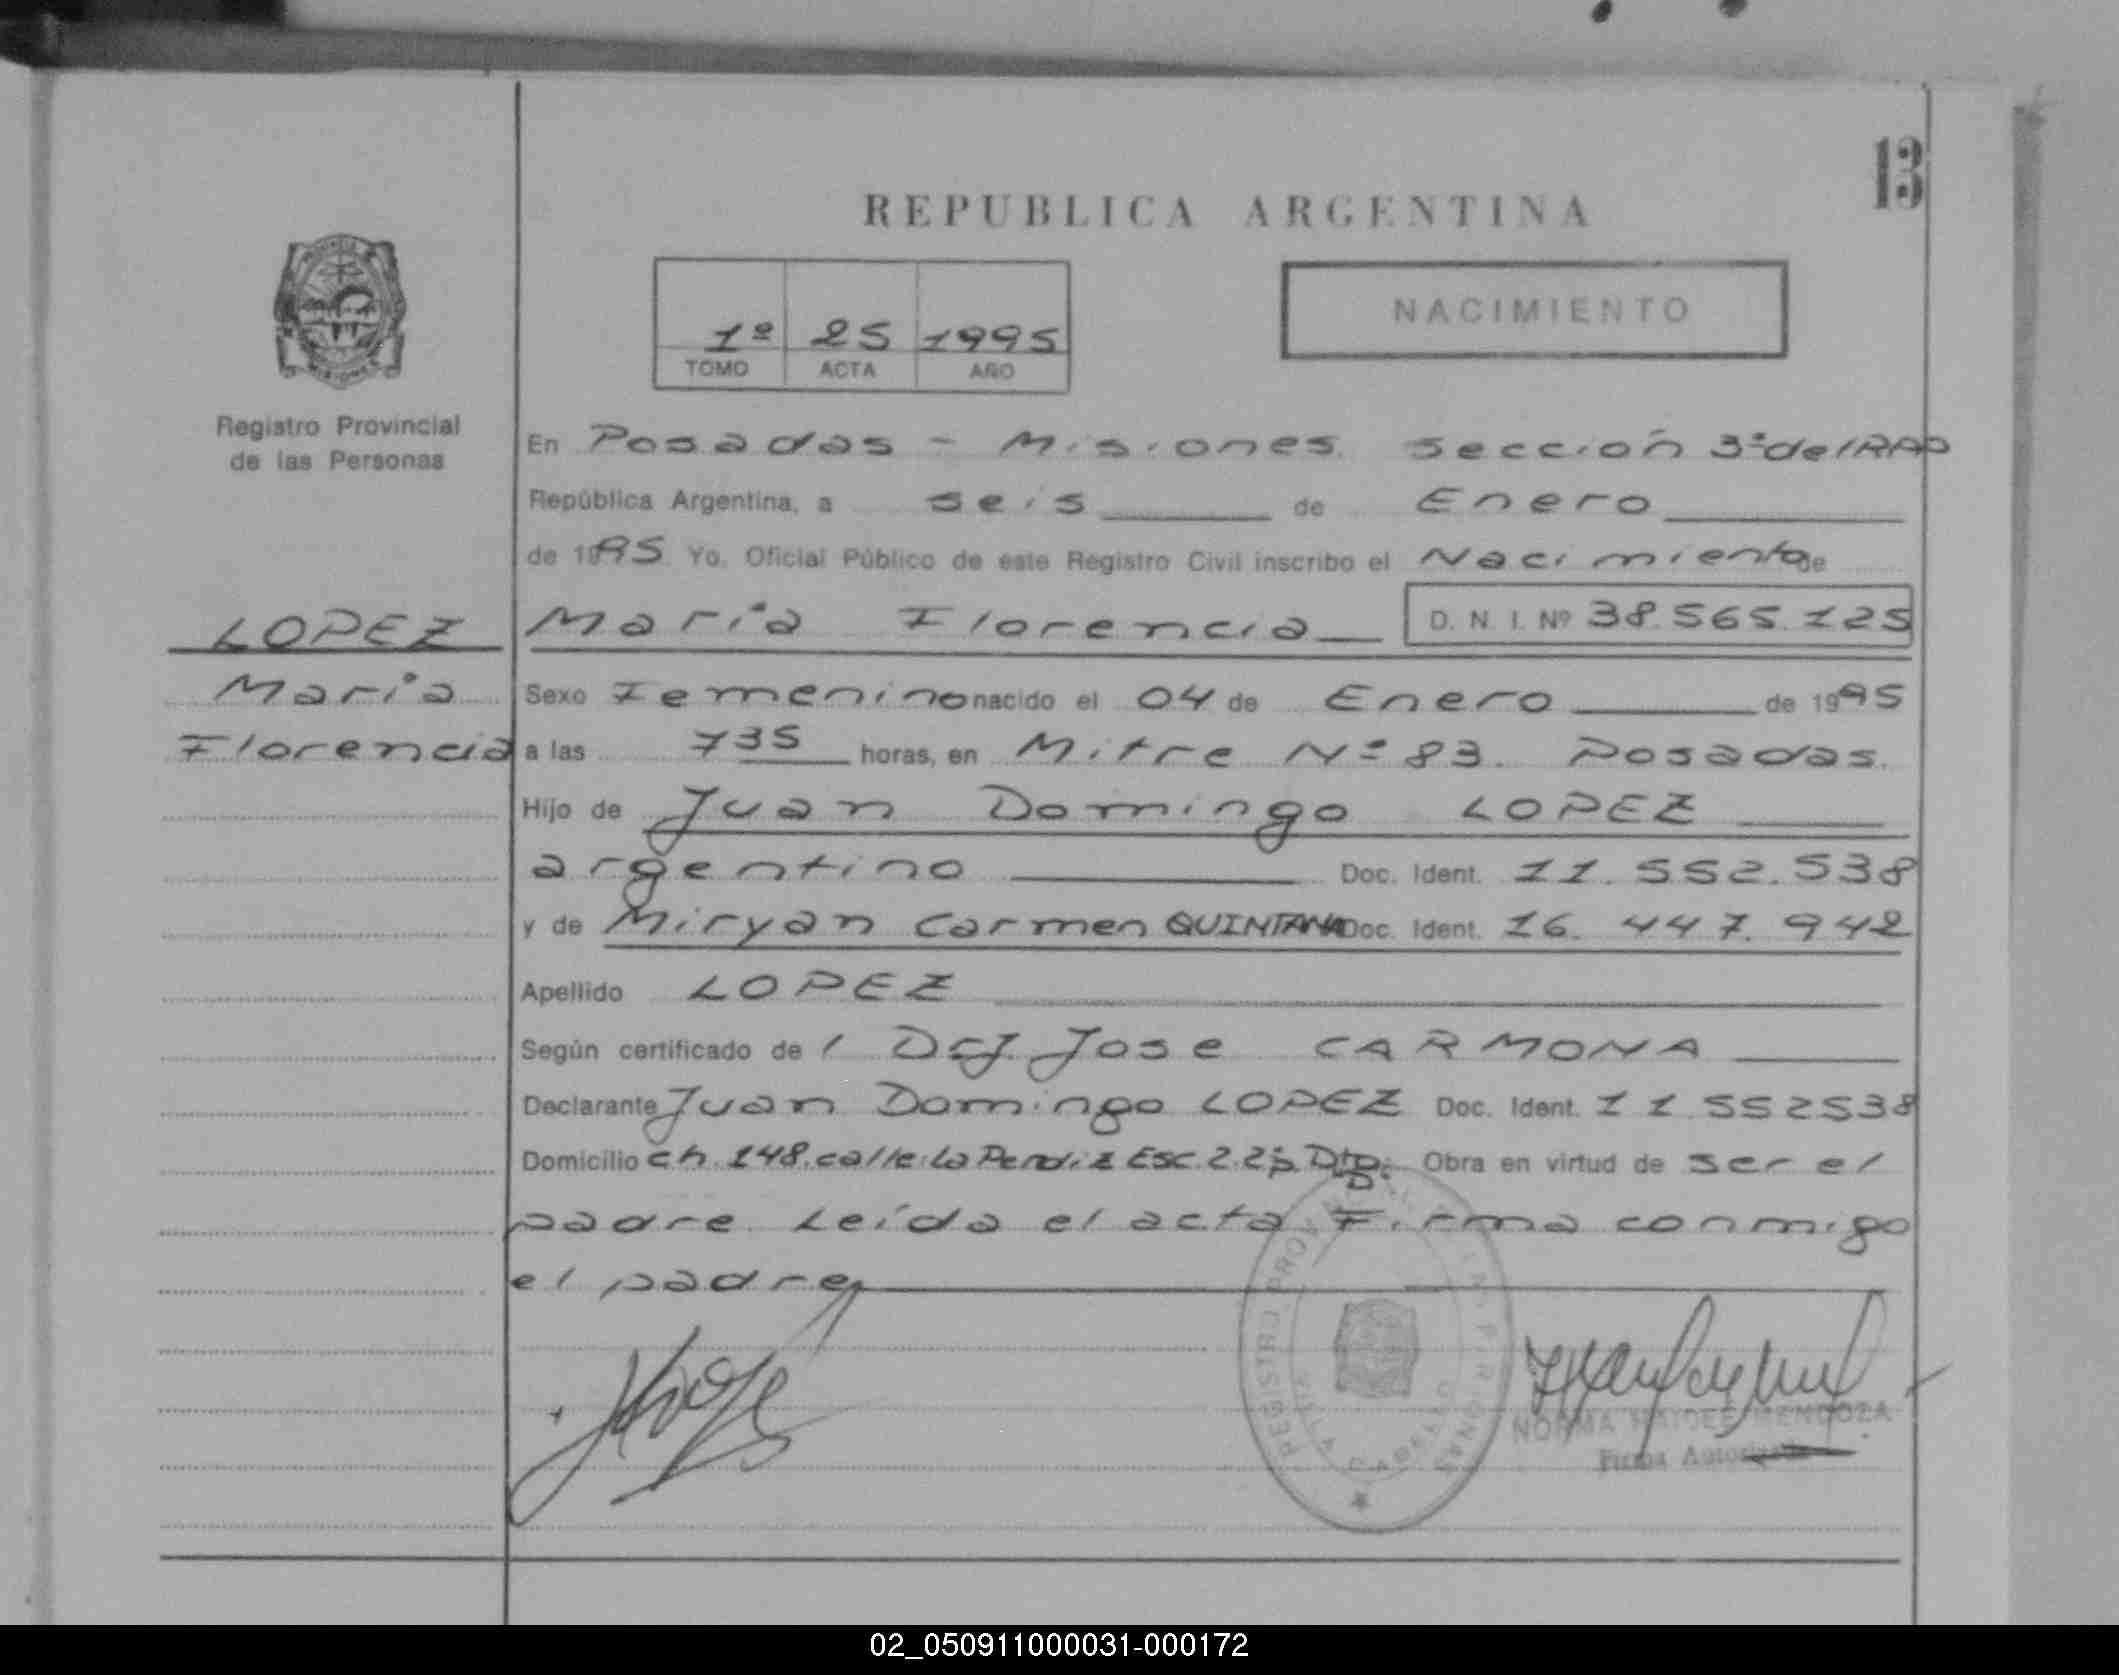 13
REPUBLICA ARGENTINA
NACIMIENTO
1º 25 1995
TOMO ACTA AÑO
Registro Provincial
de las Personas
En Posadas - Misiones. Sección 3ª del RPP
República Argentina, a seis de Enero
de 1995. Yo, Oficial Público de este Registro Civil inscribo el Nacimiento de
LOPEZ María Florencia D. N. I. Nº 38.565.125
María
Florencia
Sexo Femenino nacido el 04 de Enero de 1995
a las 7 35 horas, en Mitre Nº 83. Posadas.
Hijo de Juan Domingo LOPEZ
argentino Doc. Ident. 11.552.538
y de Miryan Carmen QUINTANA Doc. Ident. 16.447.942
Apellido LOPEZ
Según certificado del Dr. Jose CARMONA
Declarante Juan Domingo LOPEZ Doc. Ident. 11 552538
Domicilio ch. 148. calle: La Perdiz Esc. 2. 2ºp. Dto. D. Obra en virtud de ser el
padre. Leída el acta Firma conmigo
el padre
REGISTRO PROVINCIAL
NORMA HAYDEE MENDOZA
Firma Autorizada
02_050911000031-000172